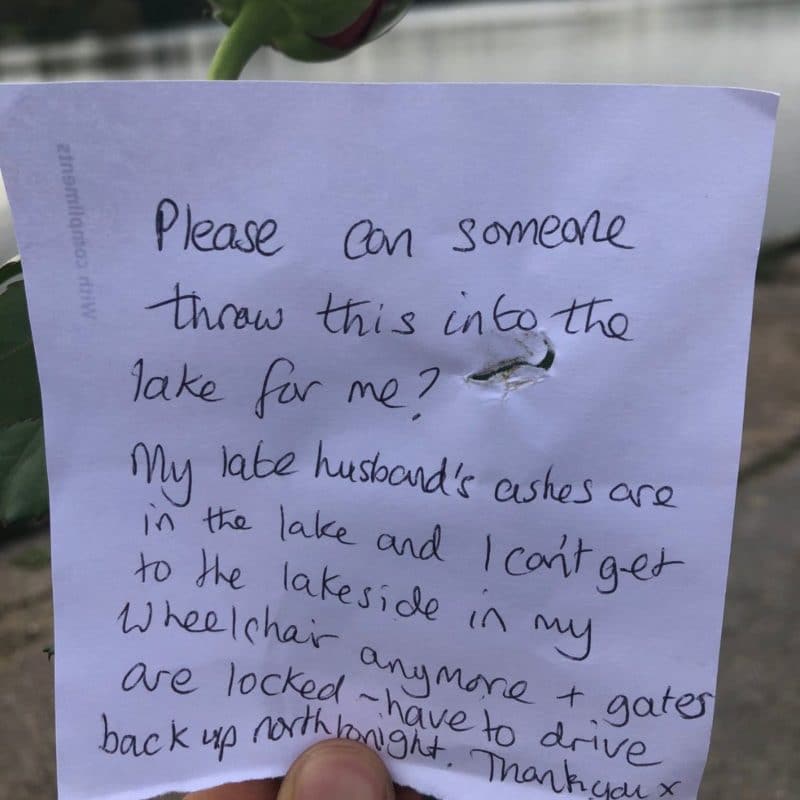 With compliments
Please can someone
throw this into the
lake for me?
My late husband's ashes are
in the lake and I can't get
to the lakeside in my
Wheelchair anymore + gates
are locked - have to drive
back up north tonight. Thank you x